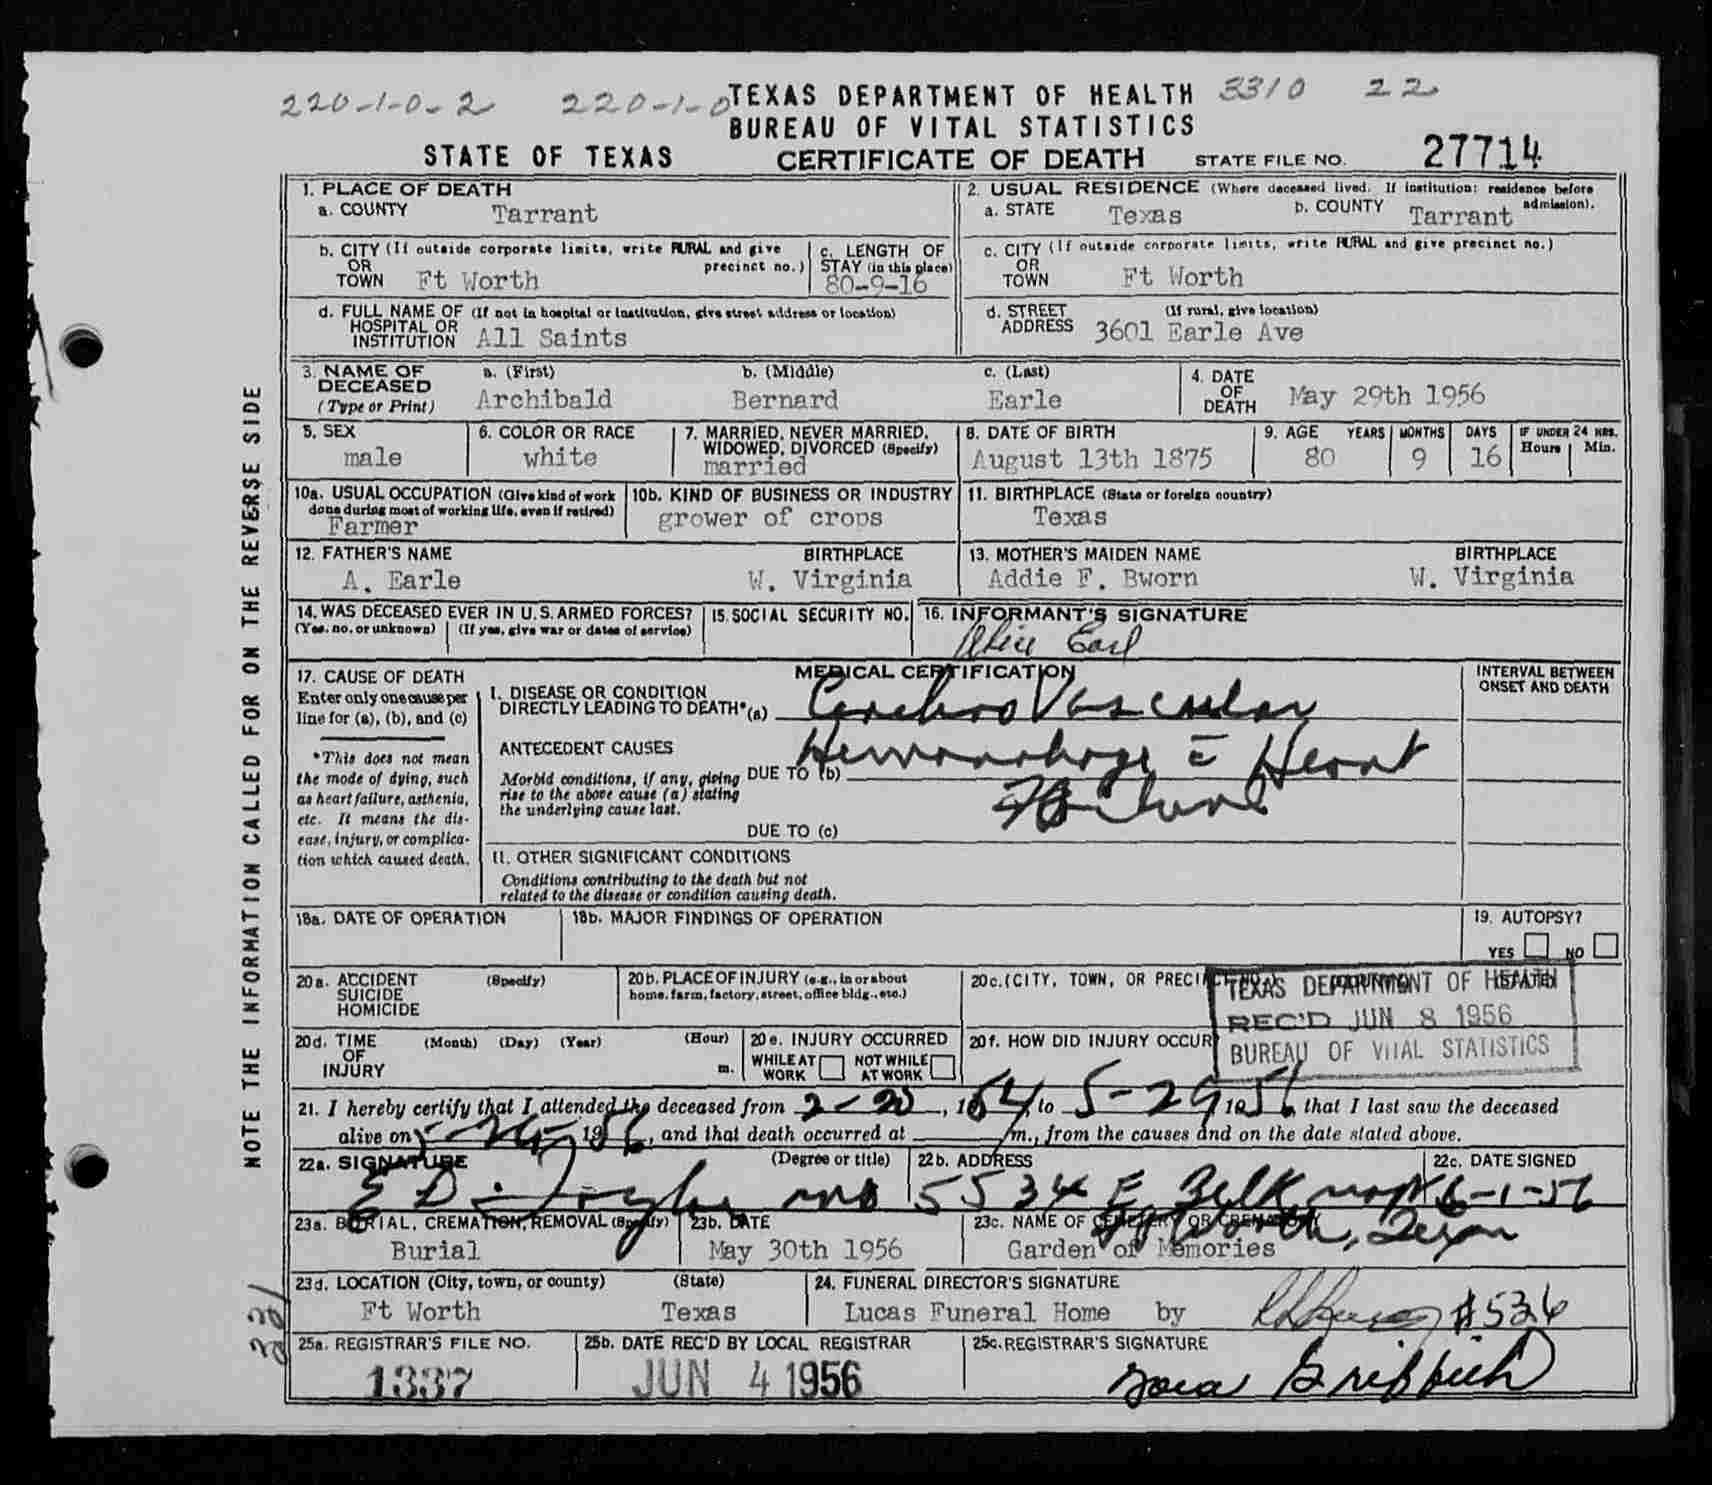 220-1-0-2 220-1-0 TEXAS DEPARTMENT OF HEALTH 3310 22
BUREAU OF VITAL STATISTICS
STATE OF TEXAS CERTIFICATE OF DEATH STATE FILE NO. 27714
1. PLACE OF DEATH
a. COUNTY Tarrant
2. USUAL RESIDENCE (Where deceased lived. If institution: residence before admission).
a. STATE Texas b. COUNTY Tarrant
b. CITY (If outside corporate limits, write RURAL and give precinct no.)
OR TOWN Ft Worth
c. LENGTH OF STAY (in this place) 80-9-16
c. CITY (If outside corporate limits, write RURAL and give precinct no.)
OR TOWN Ft Worth
d. FULL NAME OF (If not in hospital or institution, give street address or location)
HOSPITAL OR INSTITUTION All Saints
d. STREET ADDRESS (If rural, give location)
3601 Earle Ave
3. NAME OF DECEASED (Type or Print)
a. (First) Archibald b. (Middle) Bernard c. (Last) Earle
4. DATE OF DEATH May 29th 1956
5. SEX male
6. COLOR OR RACE white
7. MARRIED, NEVER MARRIED, WIDOWED, DIVORCED (Specify) married
8. DATE OF BIRTH August 13th 1875
9. AGE YEARS 80 MONTHS 9 DAYS 16 IF UNDER 24 HRS. Hours Min.
10a. USUAL OCCUPATION (Give kind of work done during most of working life, even if retired) Farmer
10b. KIND OF BUSINESS OR INDUSTRY grower of crops
11. BIRTHPLACE (State or foreign country) Texas
12. FATHER'S NAME A. Earle BIRTHPLACE W. Virginia
13. MOTHER'S MAIDEN NAME Addie F. Bworn BIRTHPLACE W. Virginia
14. WAS DECEASED EVER IN U.S. ARMED FORCES?
(Yes, no, or unknown) (If yes, give war or dates of service)
15. SOCIAL SECURITY NO.
16. INFORMANT'S SIGNATURE
Earl
17. CAUSE OF DEATH
Enter only one cause per line for (a), (b), and (c)
*This does not mean the mode of dying, such as heart failure, asthenia, etc. It means the disease, injury, or complication which caused death.
MEDICAL CERTIFICATION
INTERVAL BETWEEN ONSET AND DEATH
I. DISEASE OR CONDITION DIRECTLY LEADING TO DEATH* (a) Cerebro Vascular
ANTECEDENT CAUSES
Morbid conditions, if any, giving rise to the above cause (a) stating the underlying cause last.
DUE TO (b) Hemorrhage c̄ Heart
Failure
DUE TO (c)
II. OTHER SIGNIFICANT CONDITIONS
Conditions contributing to the death but not related to the disease or condition causing death.
18a. DATE OF OPERATION
18b. MAJOR FINDINGS OF OPERATION
19. AUTOPSY?
YES NO
20a. ACCIDENT SUICIDE HOMICIDE (Specify)
20b. PLACE OF INJURY (e.g., in or about home, farm, factory, street, office bldg., etc.)
20c. (CITY, TOWN, OR PRECINCT
TEXAS DEPARTMENT OF HEALTH
REC'D JUN 8 1956
BUREAU OF VITAL STATISTICS
20d. TIME OF INJURY (Month) (Day) (Year) (Hour) m.
20e. INJURY OCCURRED
WHILE AT WORK NOT WHILE AT WORK
20f. HOW DID INJURY OCCUR
21. I hereby certify that I attended the deceased from 2-20, 1954, to 5-29, 1956, that I last saw the deceased
alive on 1956, and that death occurred at m., from the causes and on the date stated above.
22a. SIGNATURE (Degree or title) E D MD
22b. ADDRESS 5534 E Belknap
Ft Worth, Texas
22c. DATE SIGNED 6-1-56
23a. BURIAL, CREMATION, REMOVAL (Specify) Burial
23b. DATE May 30th 1956
23c. NAME OF CEMETERY OR CREMATORY Garden of Memories
23d. LOCATION (City, town, or county) (State)
Ft Worth Texas
24. FUNERAL DIRECTOR'S SIGNATURE
Lucas Funeral Home by #536
25a. REGISTRAR'S FILE NO. 1337
25b. DATE REC'D BY LOCAL REGISTRAR JUN 4 1956
25c. REGISTRAR'S SIGNATURE
Griffith
NOTE THE INFORMATION CALLED FOR ON THE REVERSE SIDE